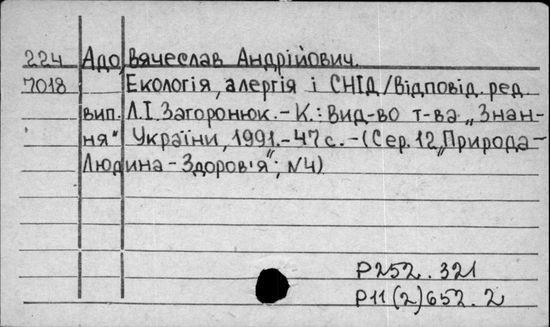 224 Адо, Вячеслав Андрійович.
7018 Екологія, алергія і СНІД/Відповід. ред.
вип. Л.І. Загоронюк. – К.: Вид-во т-ва „Знан-
ня" України, 1991. – 47 с. – (Сер. 12 „Природа –
Людина – Здоров'я"; №4)
Р252.321
Р11(2)652.2